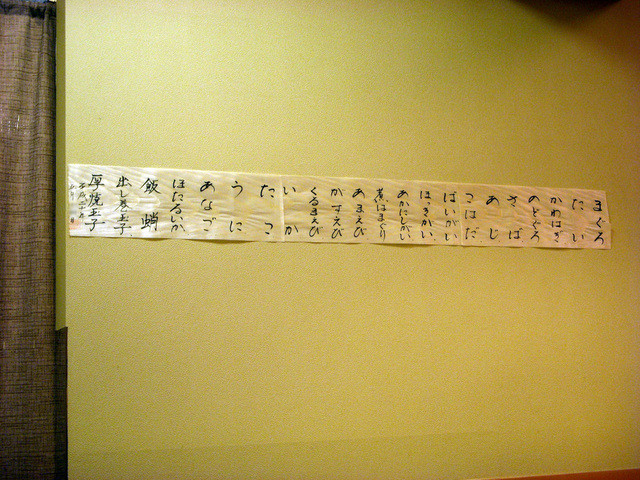 まぐろ
たい
かわはぎ
のどぐろ
さば
あじ
こはだ
ばいがい
ほっきがい
あかにしがい
煮はまぐり
あまえび
かすえび
くるまえび
いか
たこ
うに
あなご
ほたるいか
飯蛸
出し巻玉子
厚焼玉子